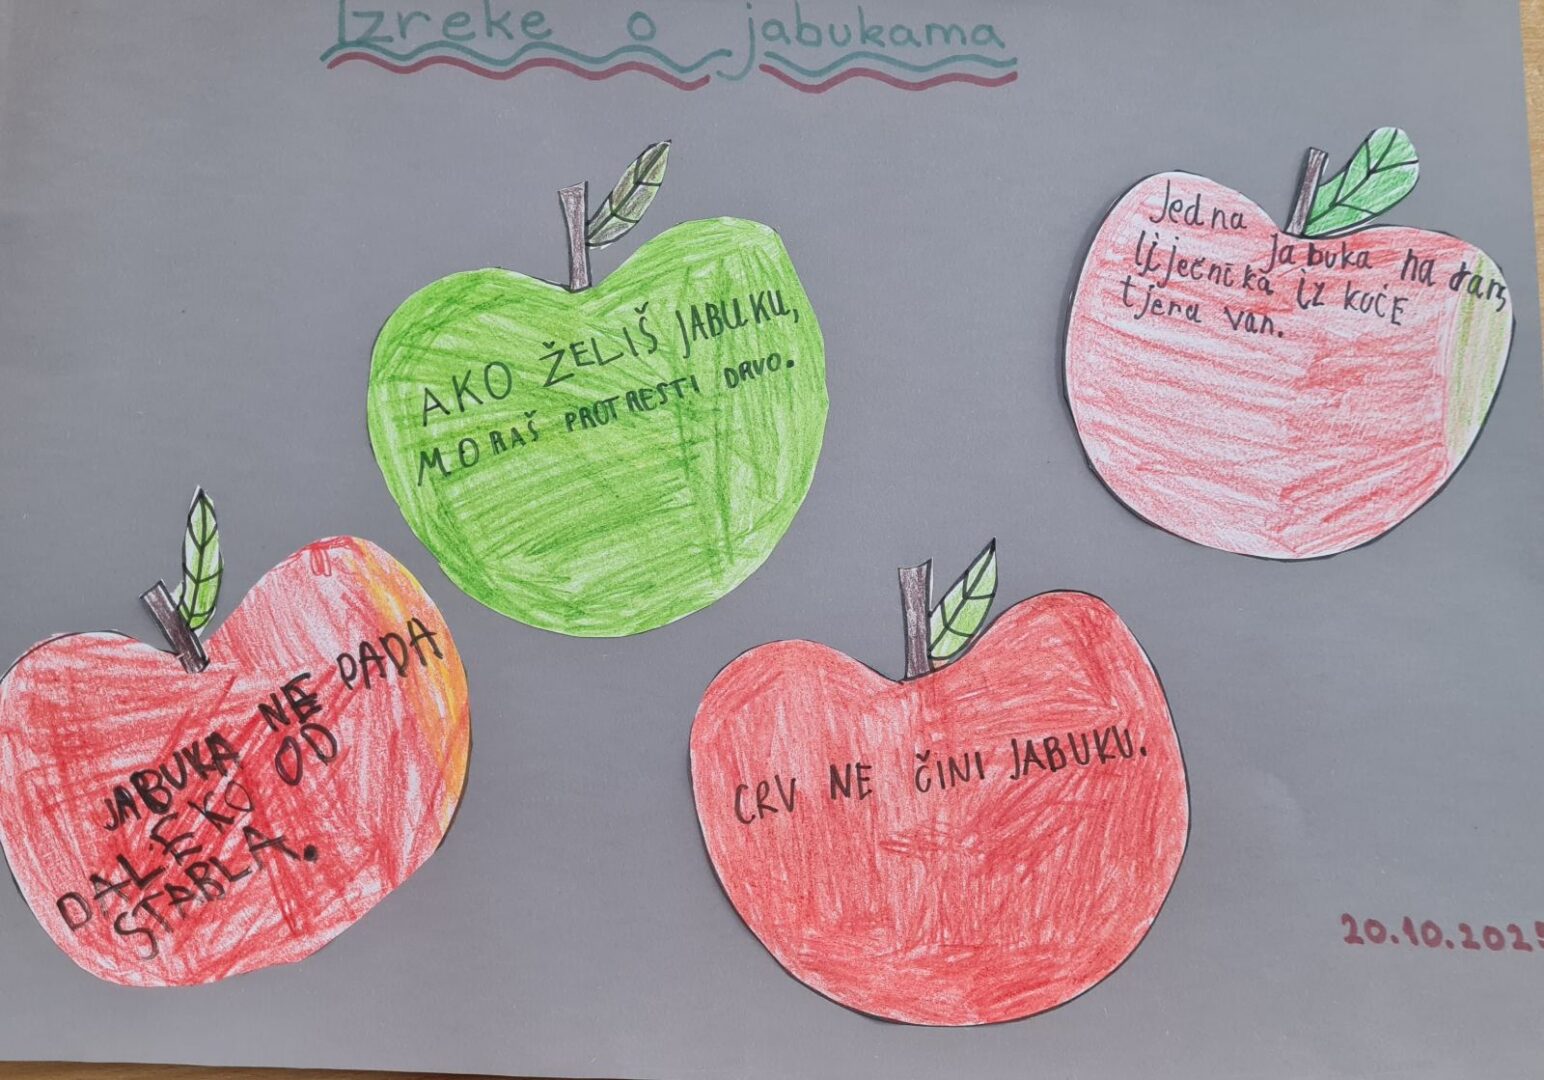 Izreke o jabukama
AKO ŽELIŠ JABUKU,
MORAŠ PROTRESTI DRVO.
Jedna jabuka na dan,
liječnika iz kuće
tjera van.
JABUKA NE PADA
DALEKO OD
STABLA.
CRV NE ČINI JABUKU.
20.10.2025